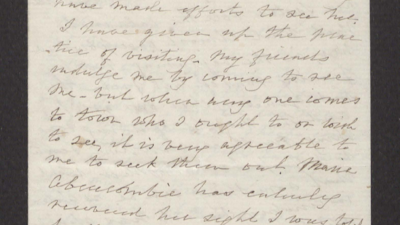 have made efforts to see her.
I have given up the prac
-tice of visiting. My friends
indulge me by coming to see
me - but when any one comes
to town who I ought to or wish
to see, it is very agreeable to
me to seek them out. Maria
Abercrombie has entirely
recovered her sight I was told